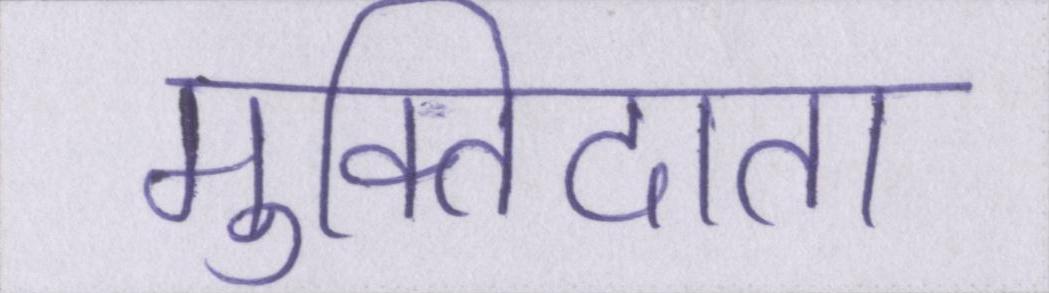 मुक्तिदाता